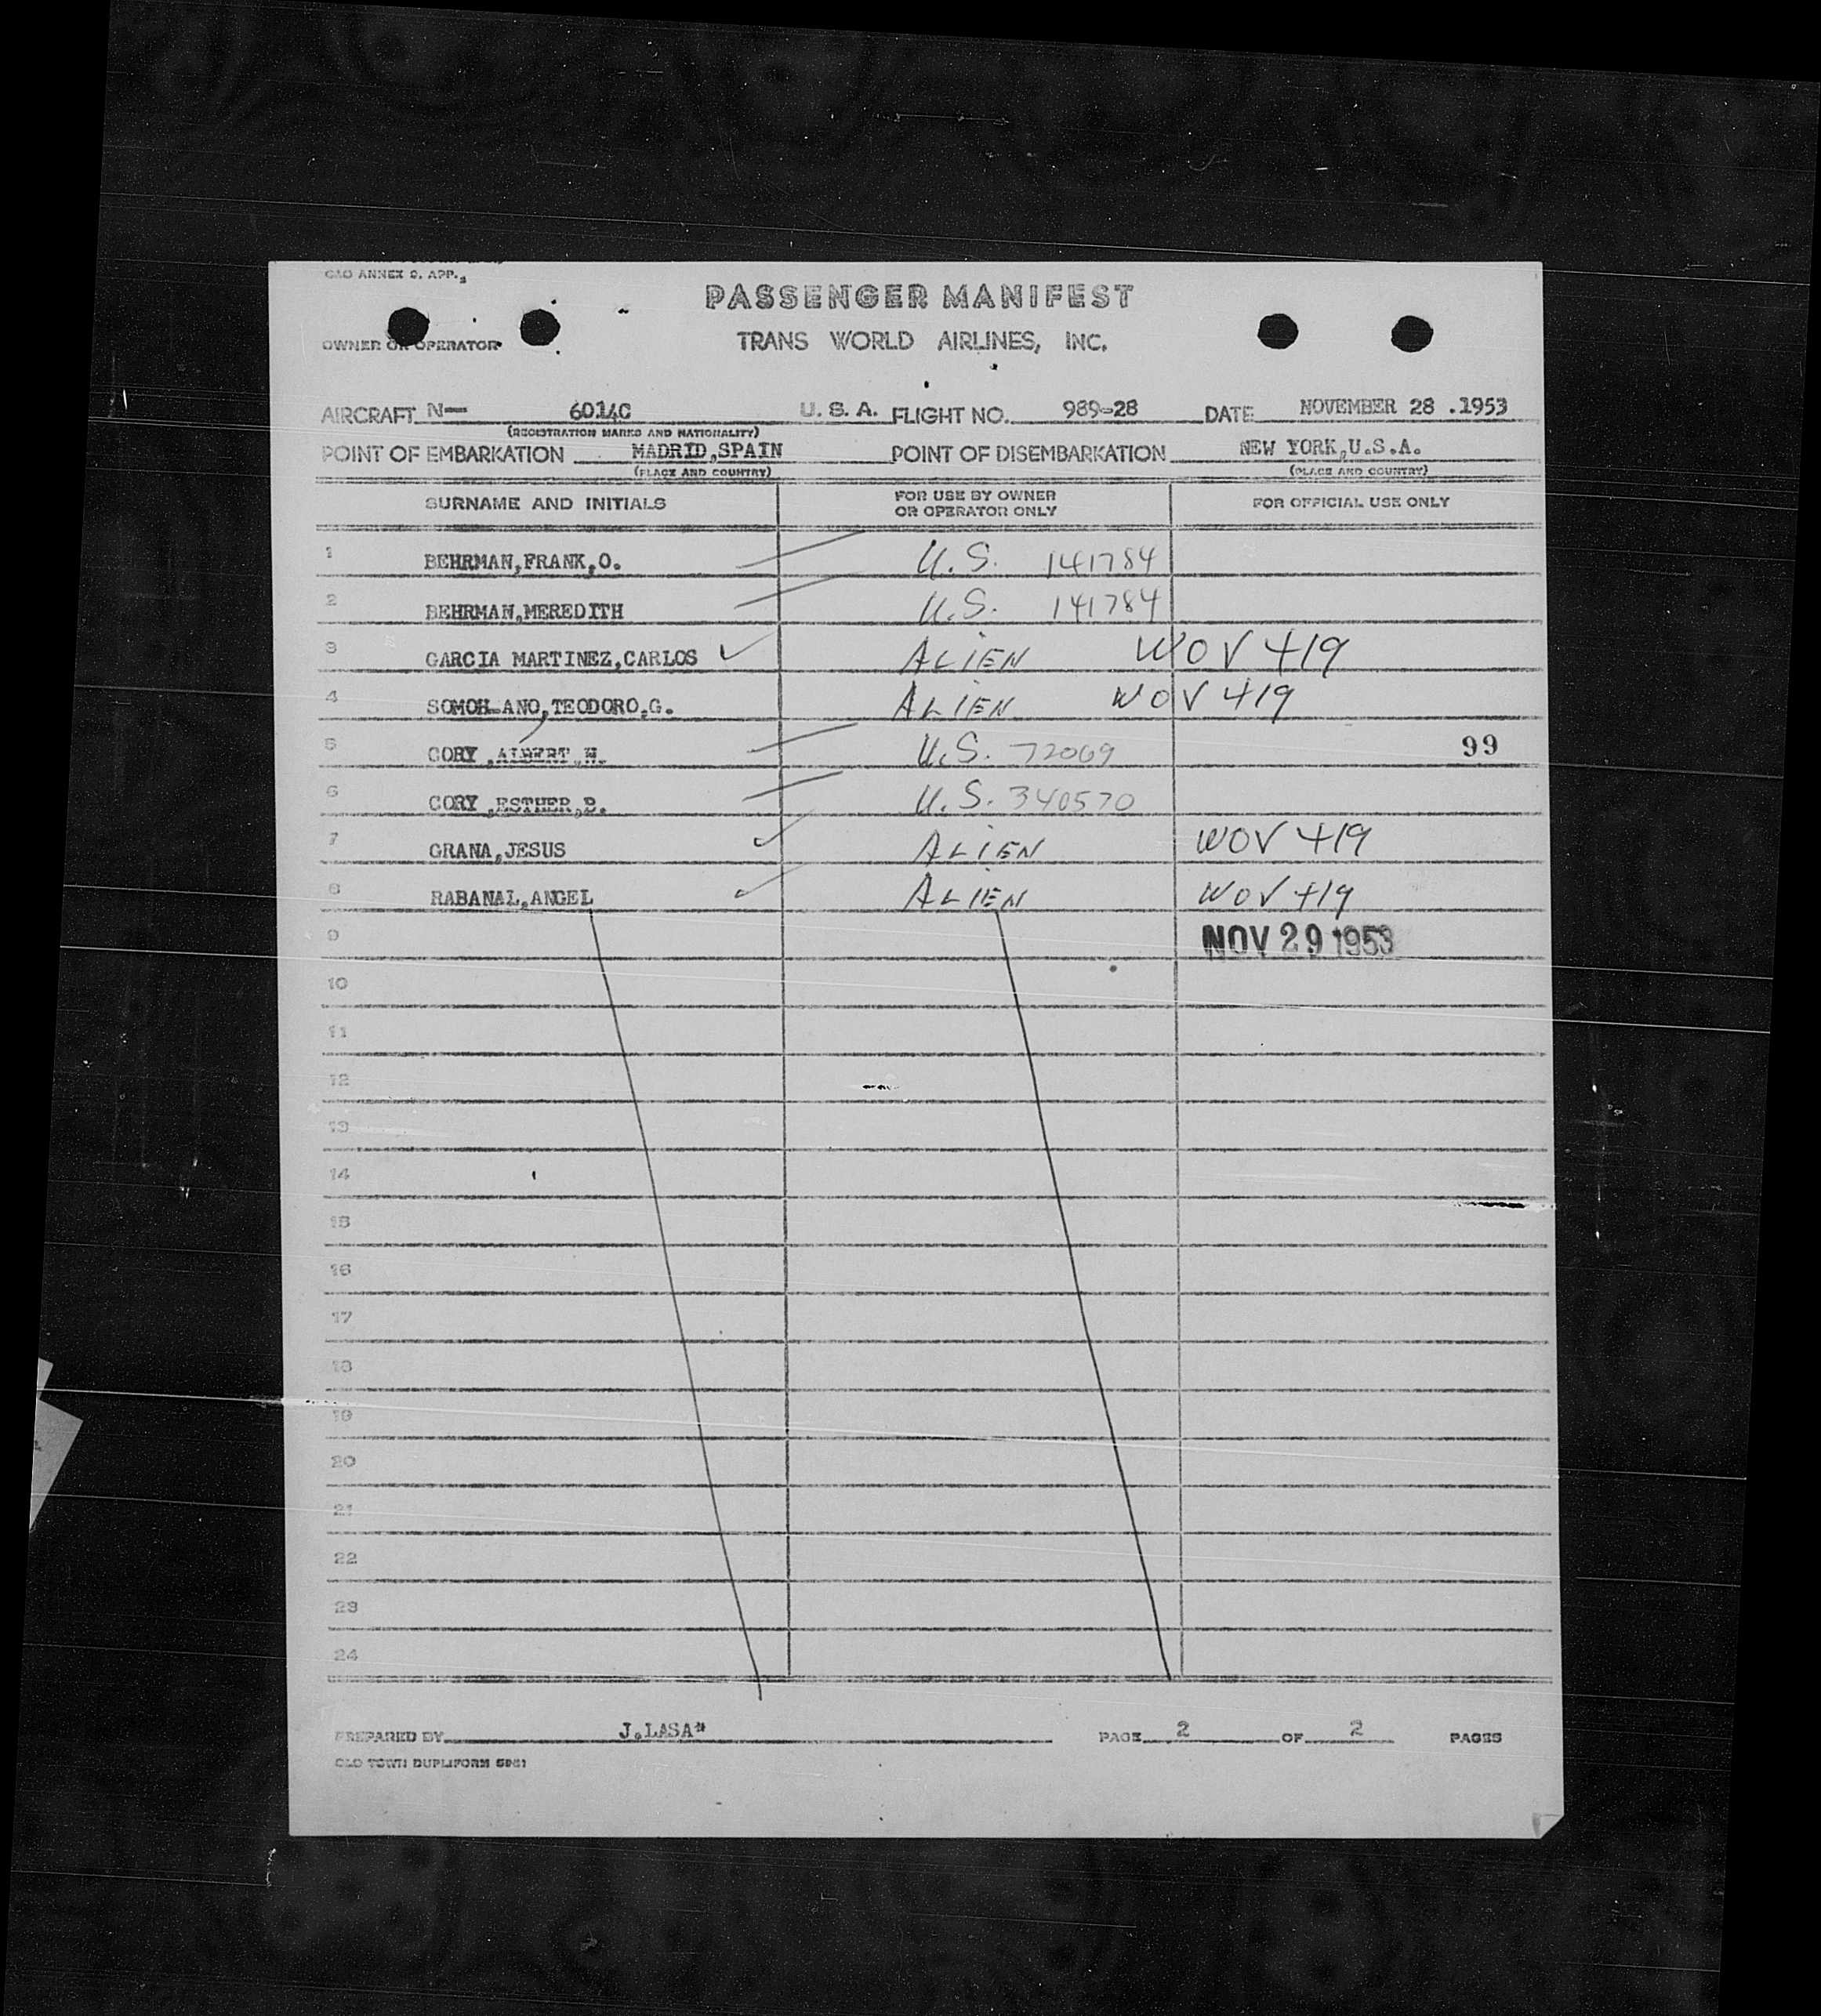 CAO ANNEX 9, APP.
PASSENGER MANIFEST
OWNER OR OPERATOR
TRANS WORLD AIRLINES, INC.
AIRCRAFT N- 6014C U. S. A. FLIGHT NO. 989-28 DATE NOVEMBER 28 .1953
(REGISTRATION MARKS AND NATIONALITY)
POINT OF EMBARKATION MADRID,SPAIN POINT OF DISEMBARKATION NEW YORK,U.S.A.
(PLACE AND COUNTRY) (PLACE AND COUNTRY)
SURNAME AND INITIALS FOR USE BY OWNER OR OPERATOR ONLY FOR OFFICIAL USE ONLY
1 BEHRMAN,FRANK,O. U.S. 141784
2 BEHRMAN,MEREDITH U.S. 141784
3 GARCIA MARTINEZ,CARLOS ALIEN WOV 419
4 SOMOH ANO,TEODORO,G. ALIEN WOV 419
5 CORY ,ALBERT,H. U.S. 72069 99
6 CORY ,ESTHER,B. U.S. 340570
7 GRANA,JESUS ALIEN WOV 419
8 RABANAL,ANGEL ALIEN WOV 419
9 NOV 29 1953
10
11
12
13
14
15
16
17
18
19
20
21
22
23
24
PREPARED BY J.LASA" PAGE 2 OF 2 PAGES
OLD TOWN DUPLIFORM